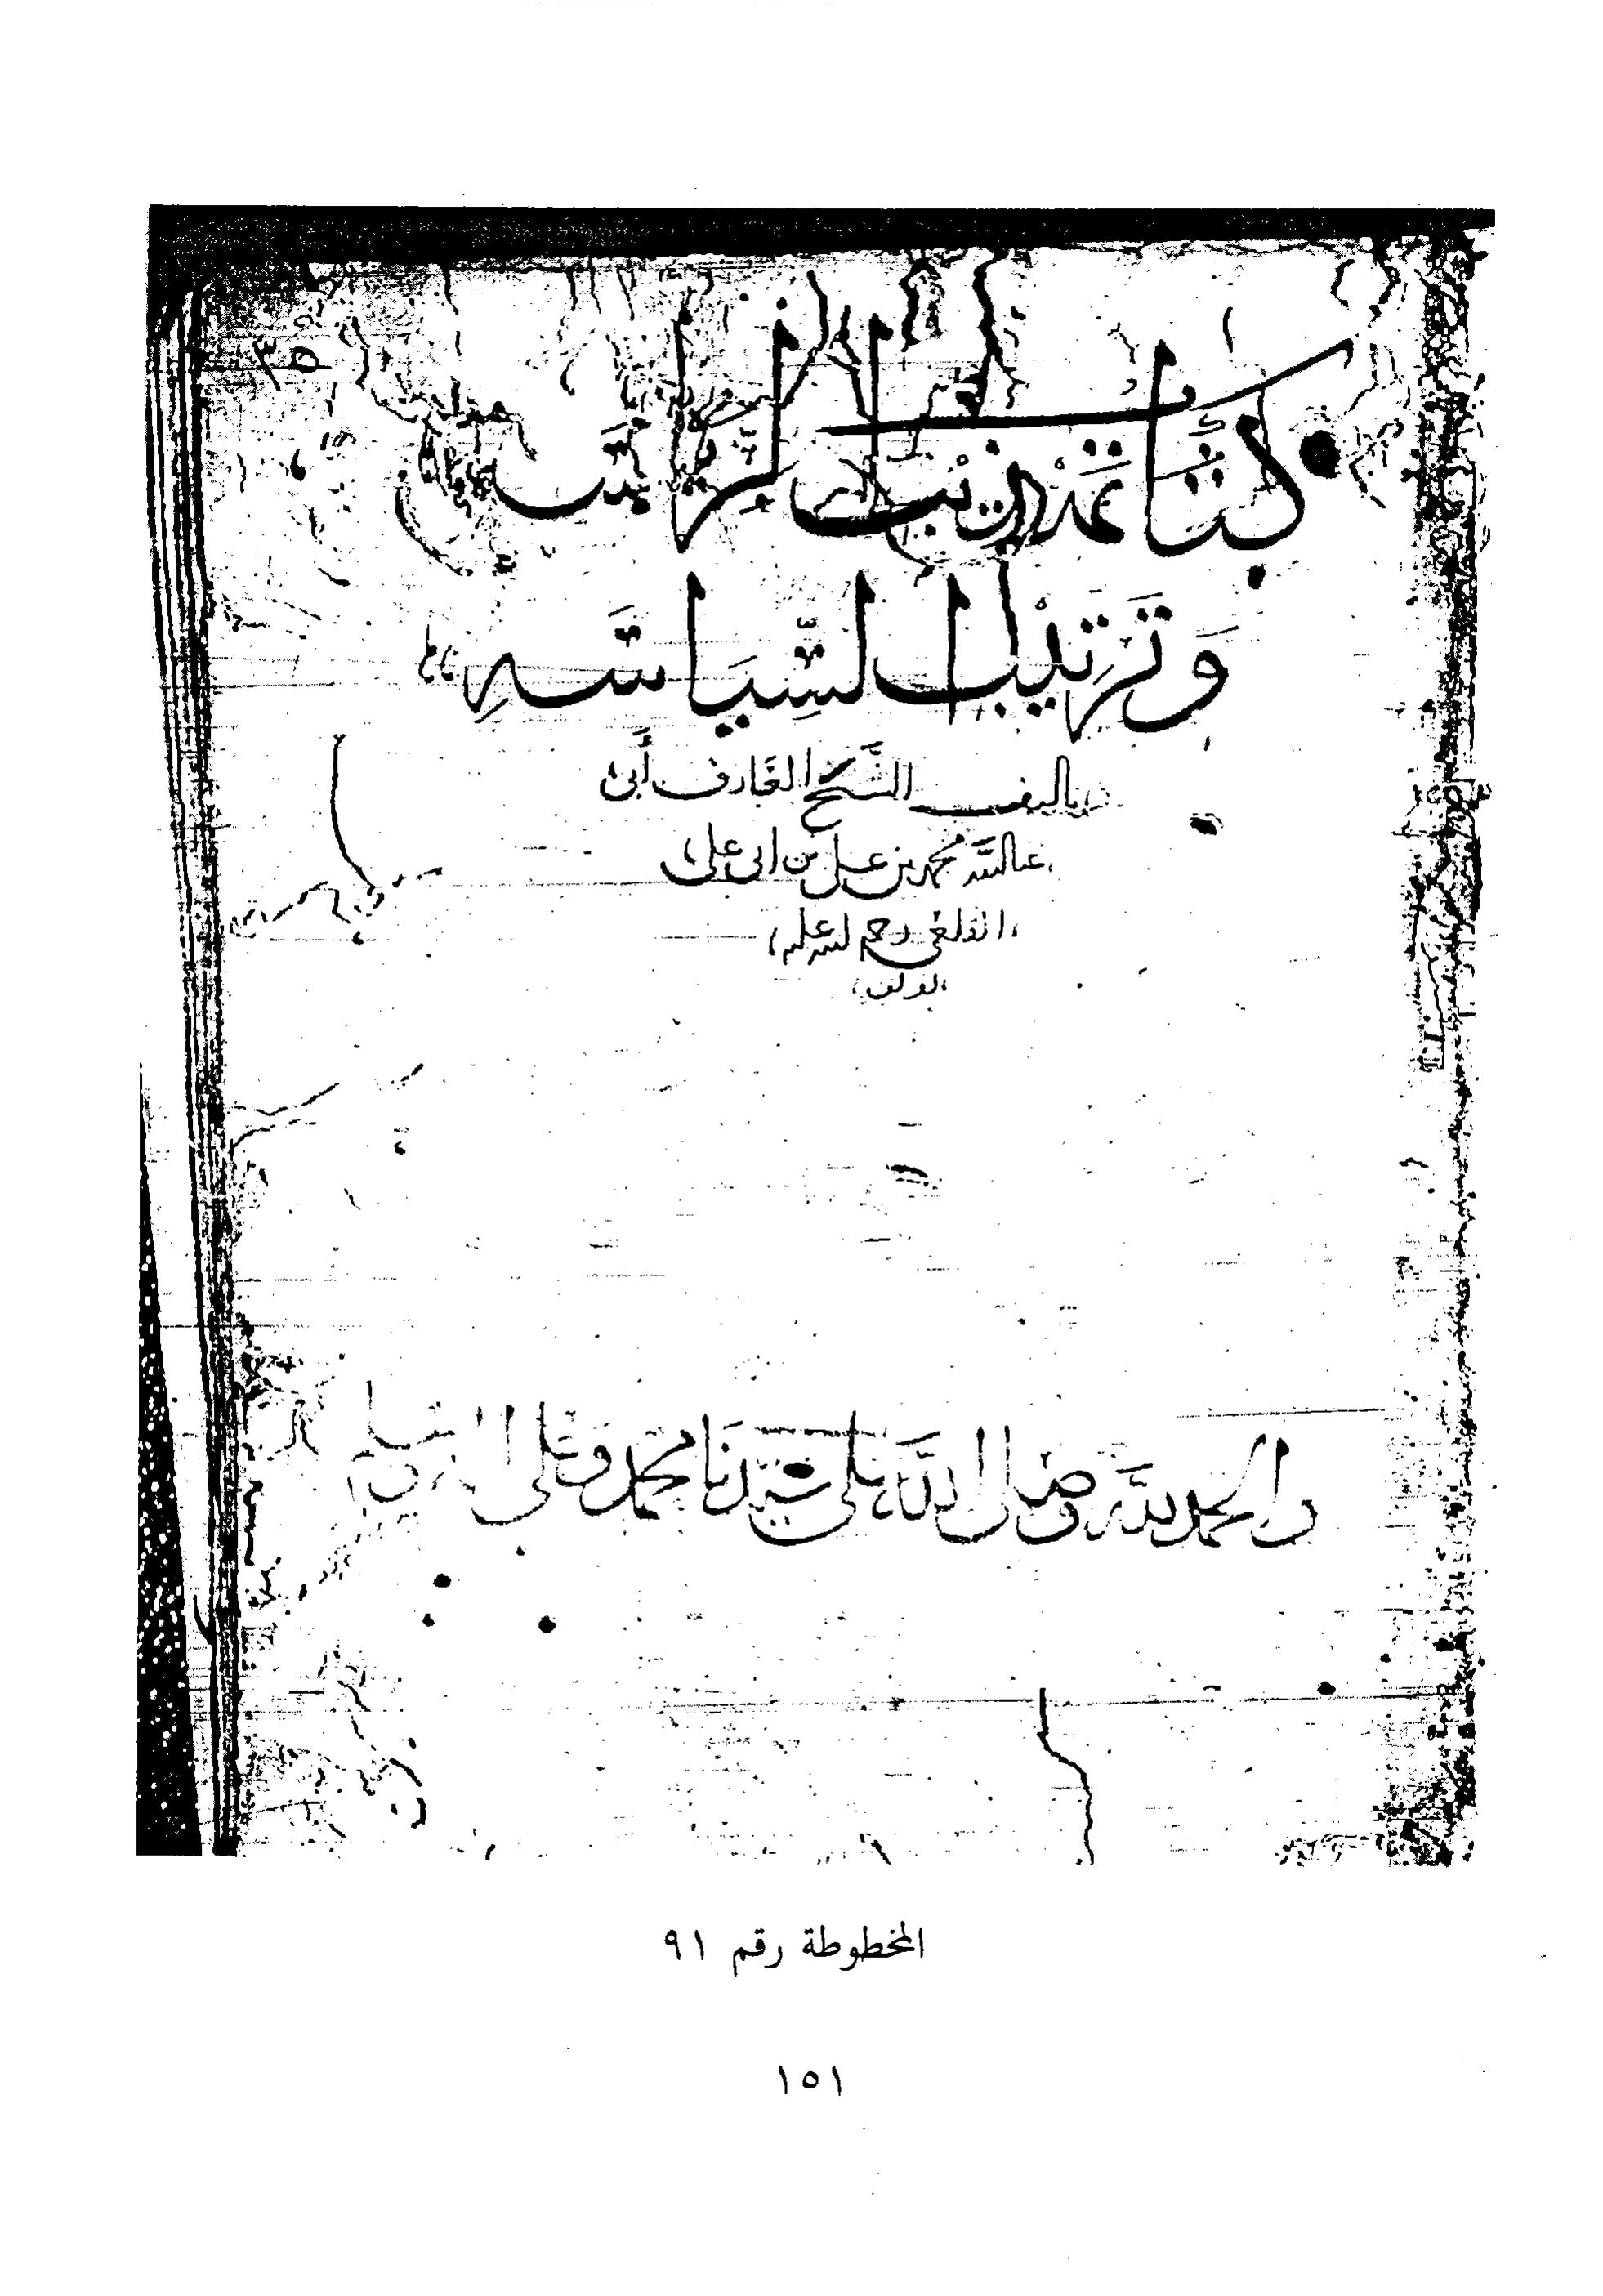 كتاب تهذيب الرياسة
وترتيب السياسة
تأليف الشيخ العارف أبي
عبد الله محمد بن علي بن أبي علي
القلعي رحمة الله عليه
والحمد لله وصلى الله على سيدنا محمد وعلى
المخطوطة رقم ٩١
١٥١